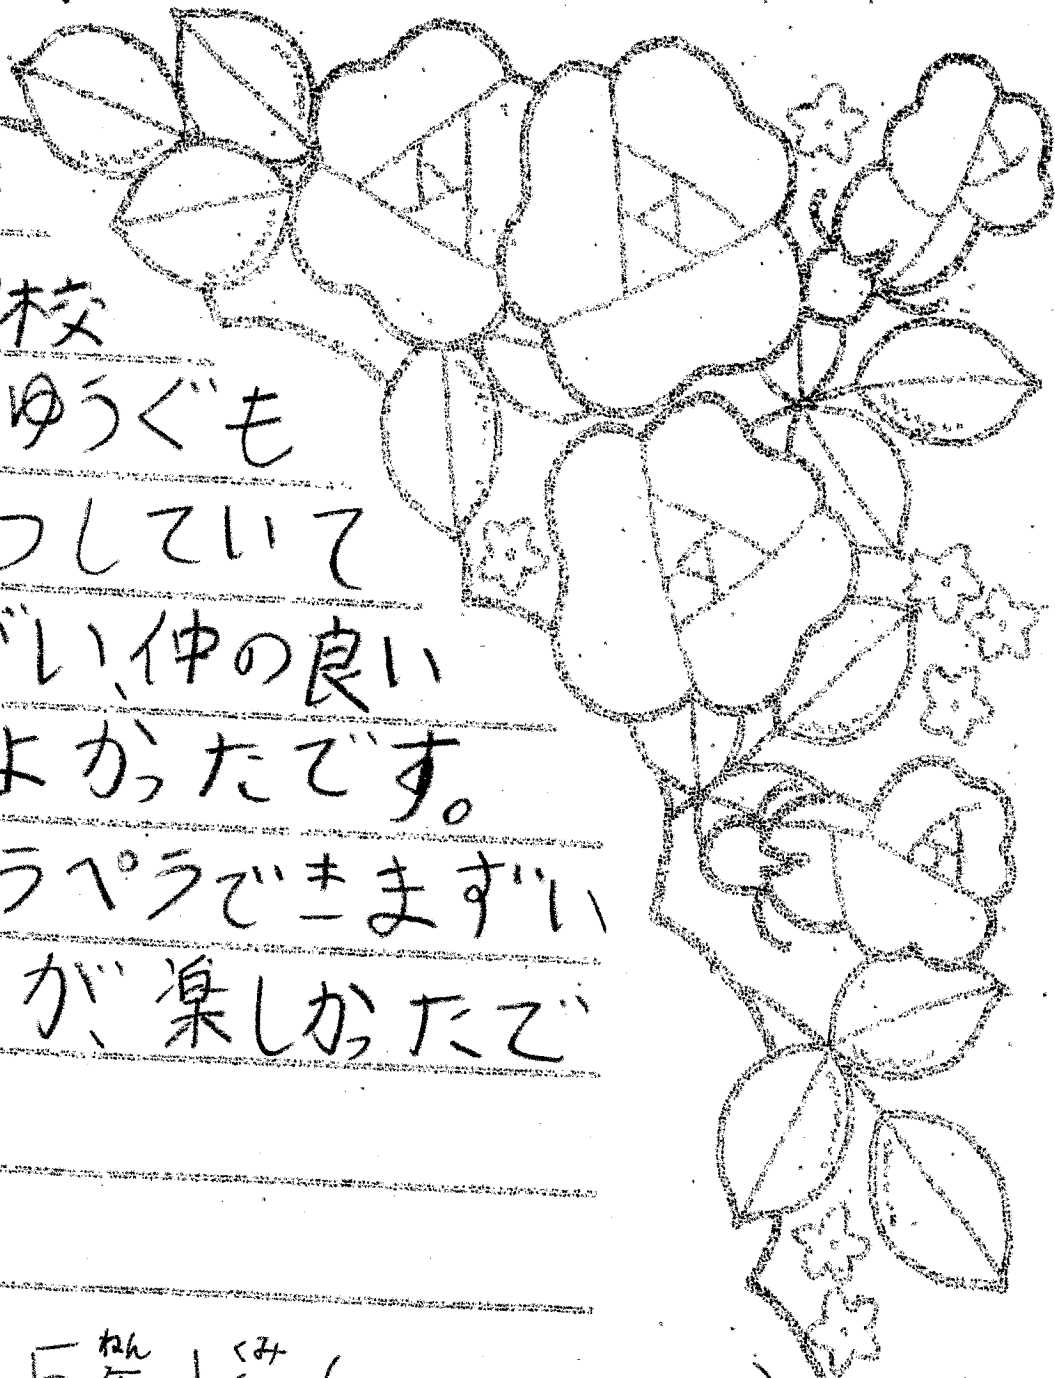 校
ゆうぐも
つしていて
い仲の良い
よかったです。
ラペラできますい
が、楽しかったで
ねん くみ